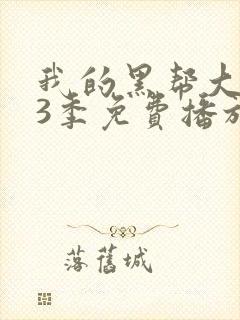 我的黑帮大
3季免費播放
落舊城